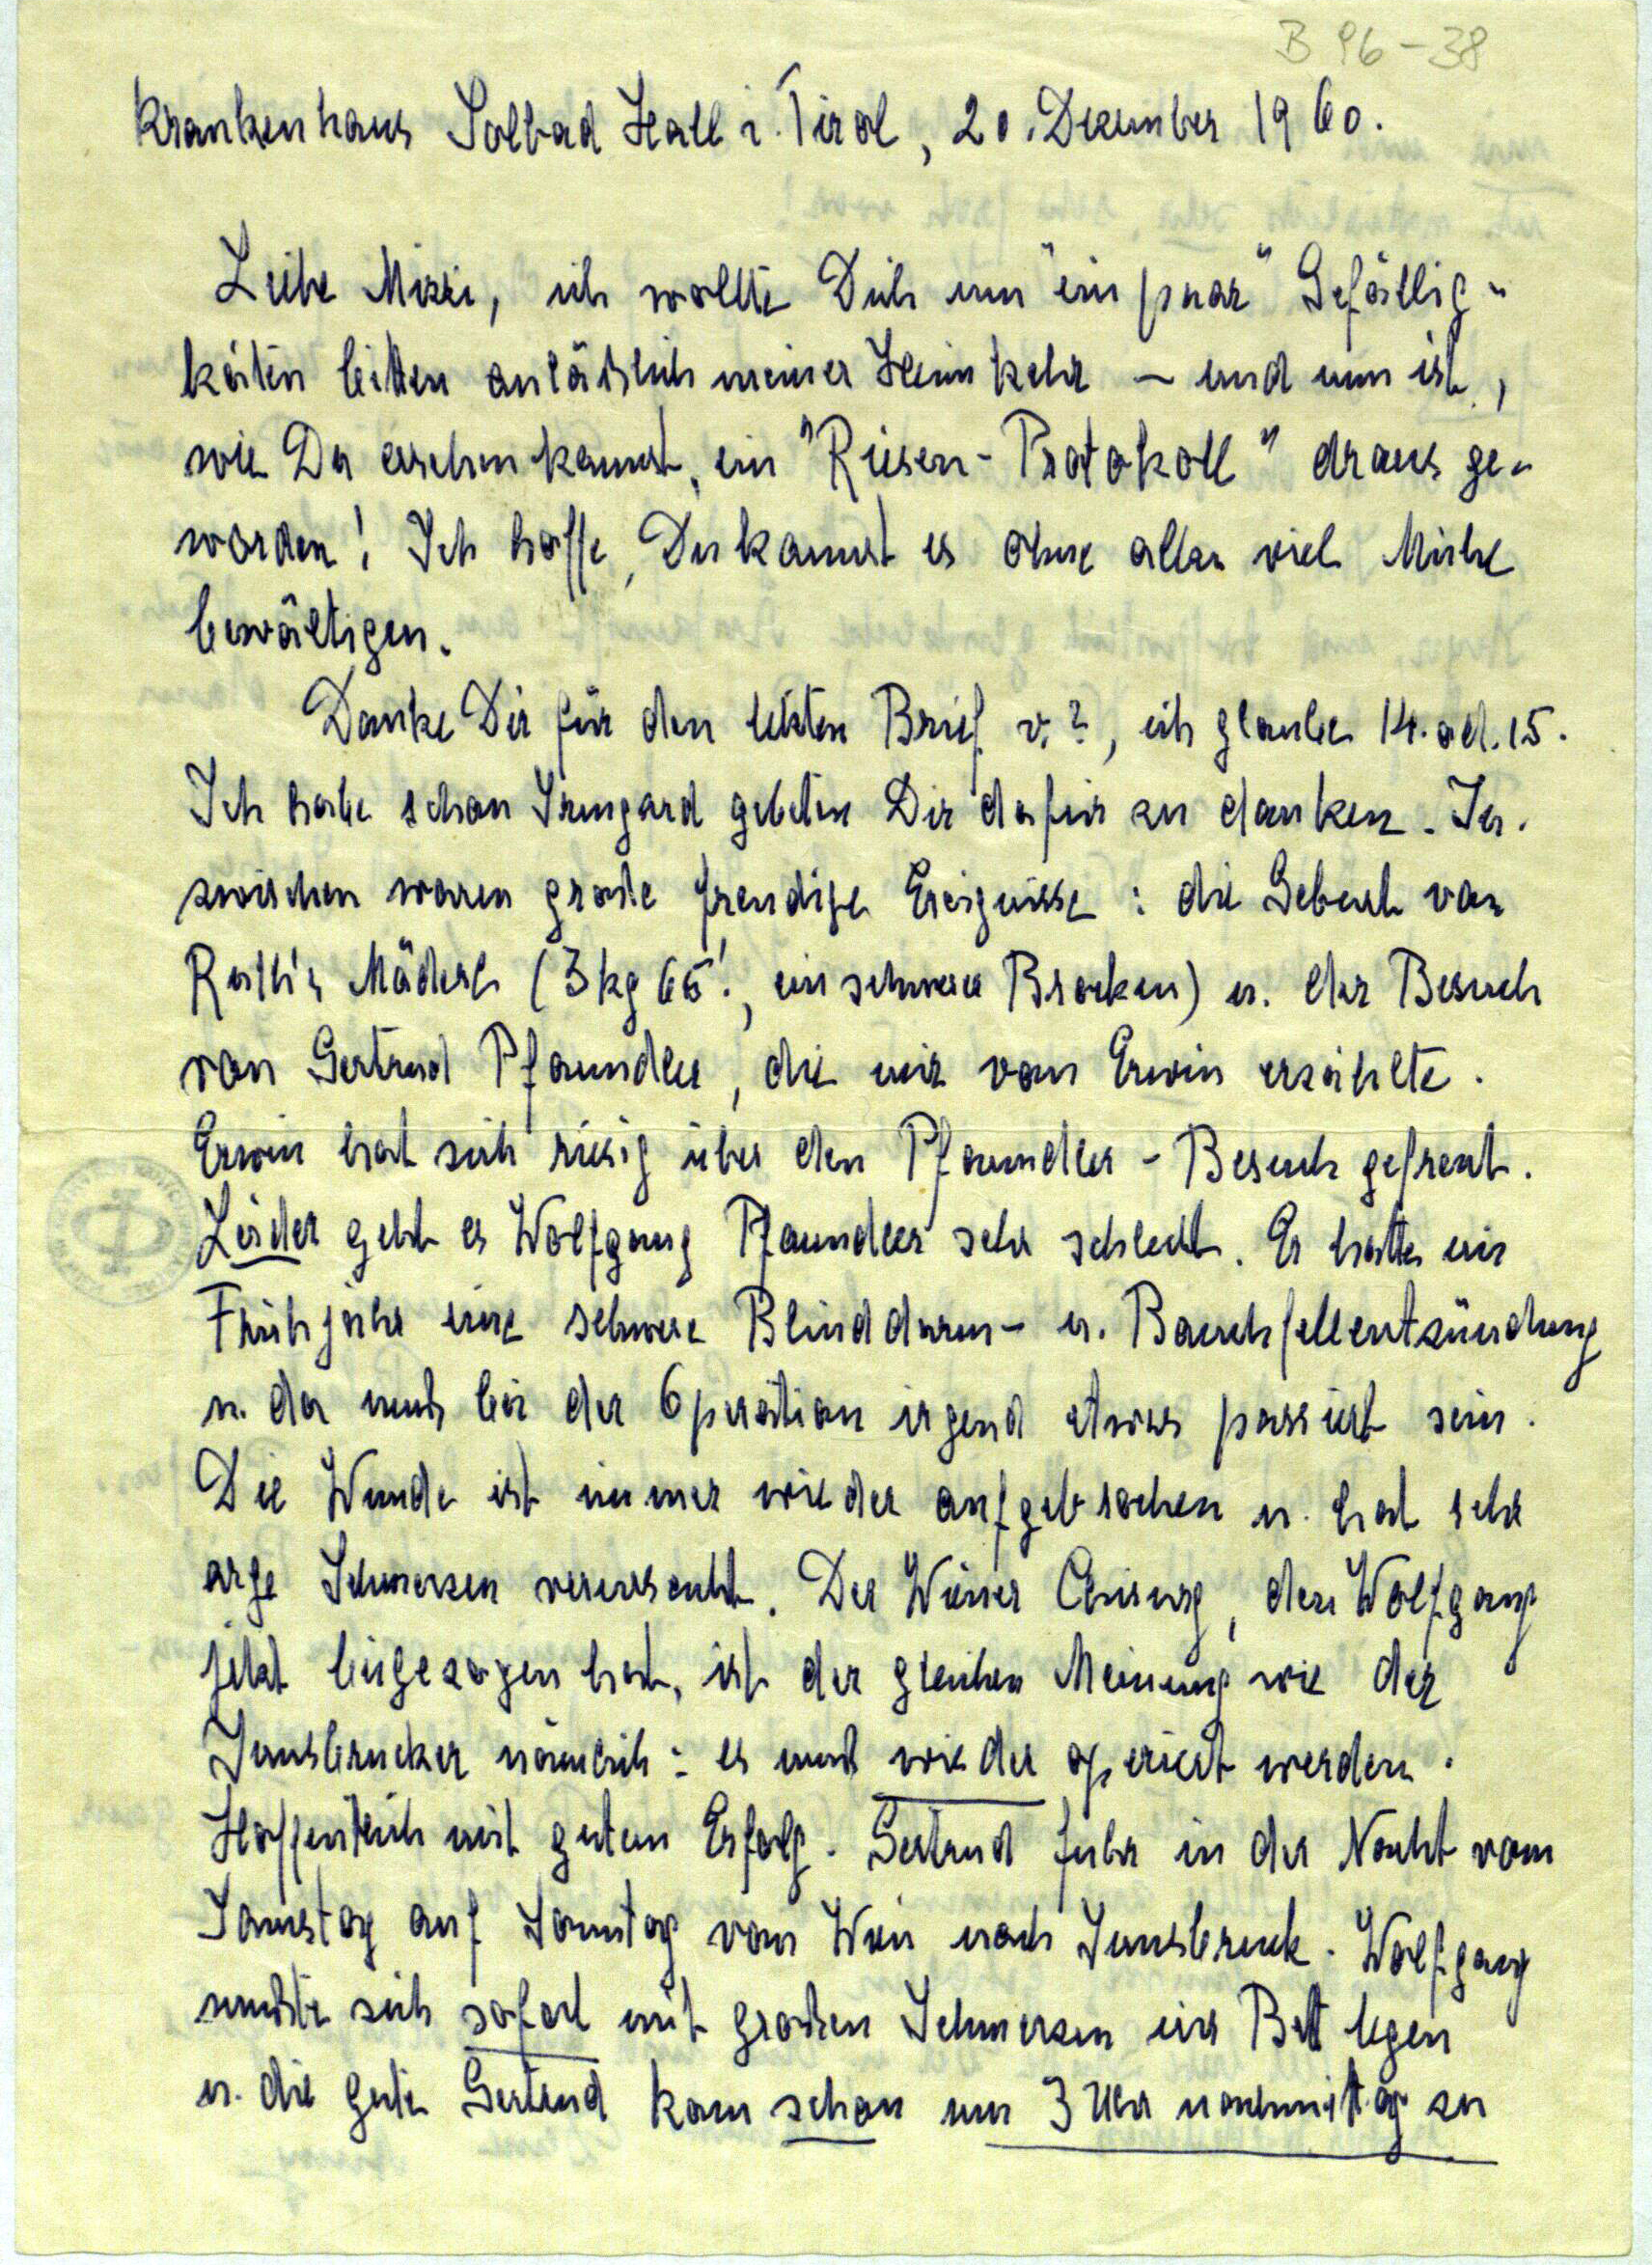 B 96-38
Krankenhaus Solbad Hall i. Tirol, 20. Dezember 1960.
Liebe Mizzi, ich wollte Dich um "ein paar" Gefällig-
keiten bitten anläßlich meiner Heimkehr – und nun ist,
wie Du ersehen kannst, ein "Riesen-Protokoll" draus ge-
worden! Ich hoffe, Du kannst es ohne allzu viel Mühe
bewältigen.
Danke Dir für den letzten Brief v. ?, ich glaube 14. od. 15.
Ich habe schon Irmgard gebeten Dir dafür zu danken. In-
zwischen waren große freudige Ereignisse: die Geburt von
Ruth's Mäderl (3 kg 65!, ein schwerer Brocken) u. der Besuch
von Gertrud Pfaundler, die mir vom Erwin erzählte.
Erwin hat sich riesig über den Pfaundler-Besuch gefreut.
Leider geht es Wolfgang Pfaundler sehr schlecht. Er hatte im
Frühjahr eine schwere Blinddarm- u. Bauchfellentzündung
u. da muß bei der Operation irgend etwas passiert sein.
Die Wunde ist immer wieder aufgebrochen u. hat sehr
arge Schmerzen verursacht. Der Wiener Chirurg, den Wolfgang
jetzt beigezogen hat, ist der gleichen Meinung wie der
Innsbrucker nämlich: es muß wieder operiert werden.
Hoffentlich mit gutem Erfolg. Gertrud fuhr in der Nacht vom
Samstag auf Sonntag von Wien nach Innsbruck. Wolfgang
mußte sich sofort mit großen Schmerzen ins Bett legen
u. die gute Gertrud kam schon um 3 Uhr nachmittag zu